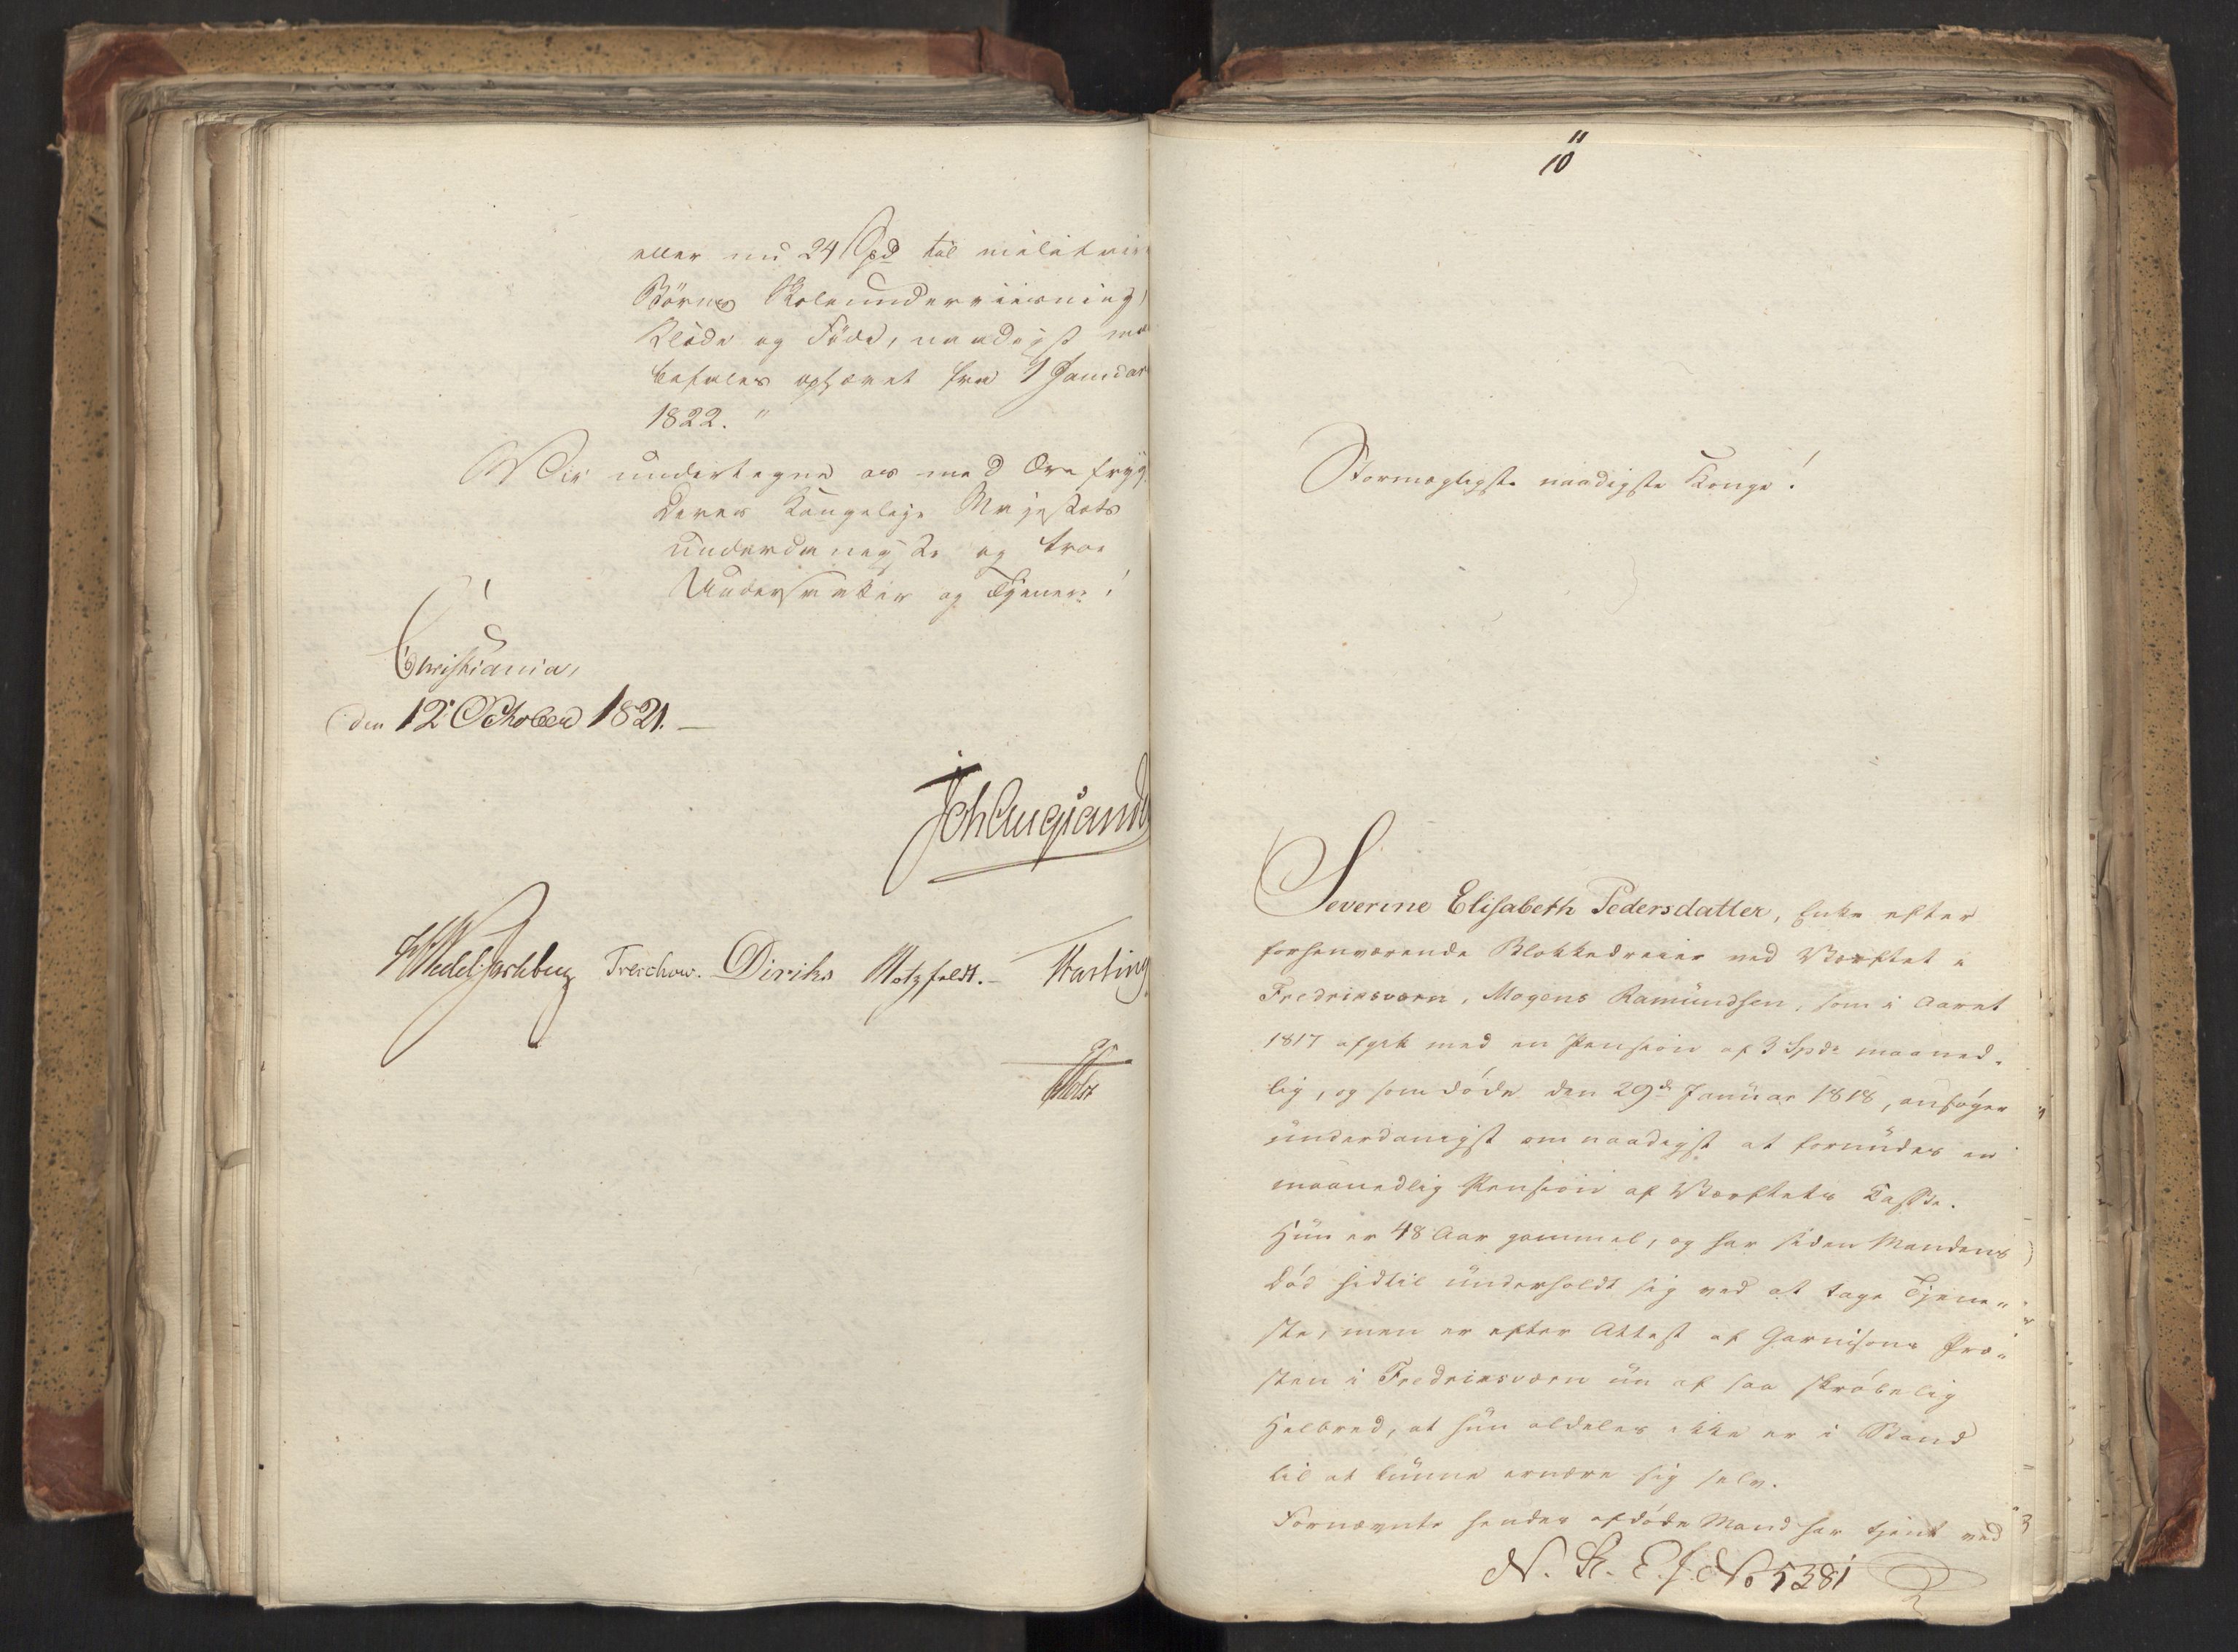 eller nu 24 Spd til militaire
Börns Skoleunderviisning,
Klæde og Föde, naadigst maa
befales ophævet fra 1 Januar
1822."
Vi undertegne os med Ærefrygt
Deres Kongelige Majestæts
underdanigste og troe
Undersaatter og Tjenere!
Christiania,
den 12 October 1821.
Joh Aug Sandels
HWedel Jarlsberg Treschow. Diriks Motzfeldt. Fasting
Holst
11
10
Stormægtigste naadigste Konge!
Severine Elisabeth Pedersdatter, Enke efter
forhenværende Blokkedreier ved Værftet i
Fredriksværn, Mogens Ramundsen, som i Aaret
1817 afgik med en Pension af 3 Spdr maaned-
lig, og som döde den 29de Januar 1818, ansöger
underdanigst om naadigst at forundes en
maanedlig Pension af Værftets Casse.
Hun er 48 Aar gammel, og har siden Mandens
Död hidtil underholdt sig ved at tage Tjene-
ste, men er efter Attest af Garnisons Præ-
sten i Fredriksværn nu af saa skröbelig
Helbred, at hun aldeles ikke er i Stand
til at kunne ernære sig selv.
Fornævnte hendes afdöde Mand har tjent ved
N. St. E. J. No 5381